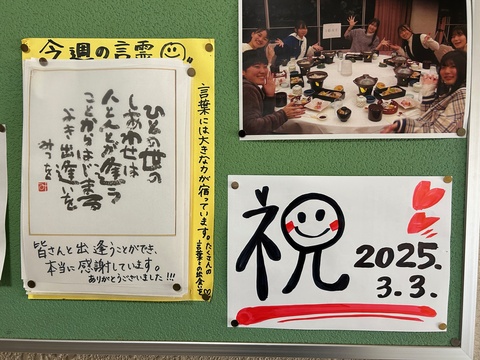 今週の言霊
ひとの世の
しあわせは
人と人とが逢う
ことからはじまる
よき出逢いを
みつを
皆さんと出逢うことができ、
本当に感謝しています。
ありがとうございました!!!
言葉には大きな力が宿っています。たくさんの
言葉との出会いを
祝
2025.
3.3.